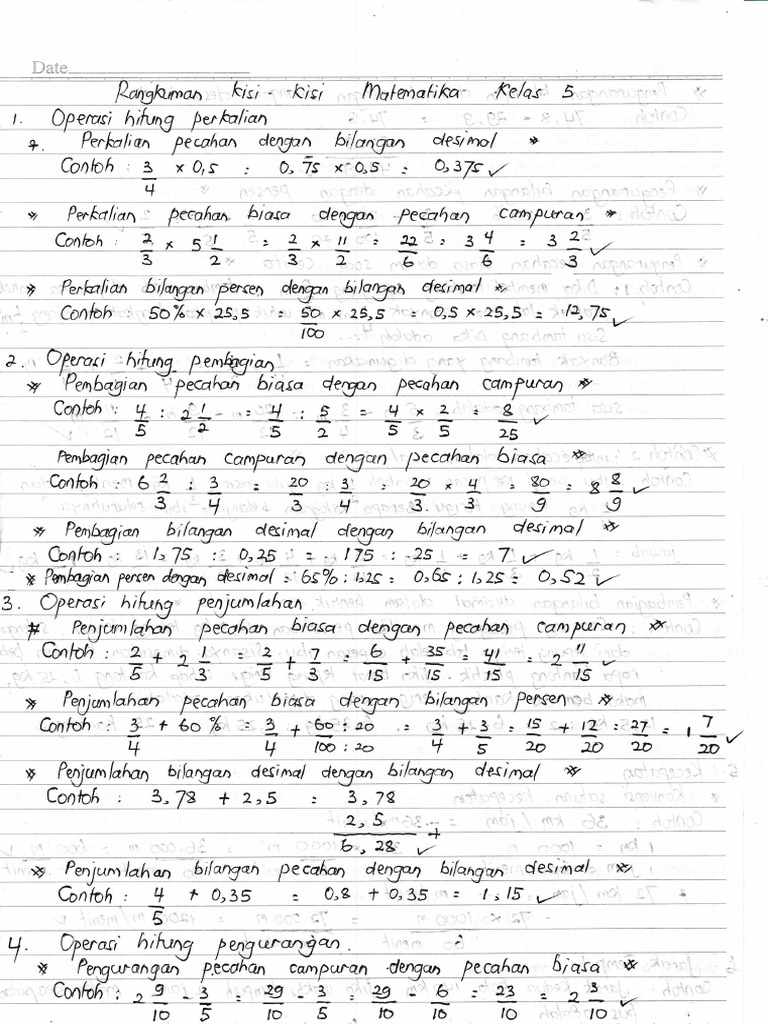 Date
Rangkuman kisi - kisi Matematika Kelas 5
1. Operasi hitung perkalian
* Perkalian pecahan dengan bilangan desimal *
Contoh : 3/4 x 0,5 = 0,75 x 0,5 = 0,375 ✓
* Perkalian pecahan biasa dengan pecahan campuran *
Contoh : 2/3 x 5 1/2 = 2/3 x 11/2 = 22/6 = 3 4/6 = 3 2/3 ✓
* Perkalian bilangan persen dengan bilangan desimal *
Contoh : 50% x 25,5 = 50/100 x 25,5 = 0,5 x 25,5 = 12,75 ✓
2. Operasi hitung pembagian
* Pembagian pecahan biasa dengan pecahan campuran *
Contoh : 4/5 : 2 1/2 = 4/5 : 5/2 = 4/5 x 2/5 = 8/25 ✓
Pembagian pecahan campuran dengan pecahan biasa *
Contoh : 6 2/3 : 3/4 = 20/3 : 3/4 = 20/3 x 4/3 = 80/9 = 8 8/9 ✓
* Pembagian bilangan desimal dengan bilangan desimal *
Contoh : 1,75 : 0,25 = 175 : 25 = 7 ✓
* Pembagian persen dengan desimal = 65% : 1,25 = 0,65 : 1,25 = 0,52 ✓
3. Operasi hitung penjumlahan
* Penjumlahan pecahan biasa dengan pecahan campuran *
Contoh : 2/5 + 2 1/3 = 2/5 + 7/3 = 6/15 + 35/15 = 41/15 = 2 11/15 ✓
* Penjumlahan pecahan biasa dengan bilangan Persen *
Contoh : 3/4 + 60% = 3/4 + 60 : 20/100 : 20 = 3/4 + 3/5 = 15/20 + 12/20 = 27/20 = 1 7/20 ✓
* Penjumlahan bilangan desimal dengan bilangan desimal *
Contoh : 3,78 + 2,5 = 3,78
2,5 +
6,28 ✓
* Penjumlahan bilangan pecahan dengan bilangan desimal *
Contoh : 4/5 + 0,35 = 0,8 + 0,35 = 1,15 ✓
4. Operasi hitung pengurangan.
* Pengurangan pecahan campuran dengan pecahan biasa *
Contoh : 2 9/10 - 3/5 = 29/10 - 3/5 = 29/10 - 6/10 = 23/10 = 2 3/10 ✓